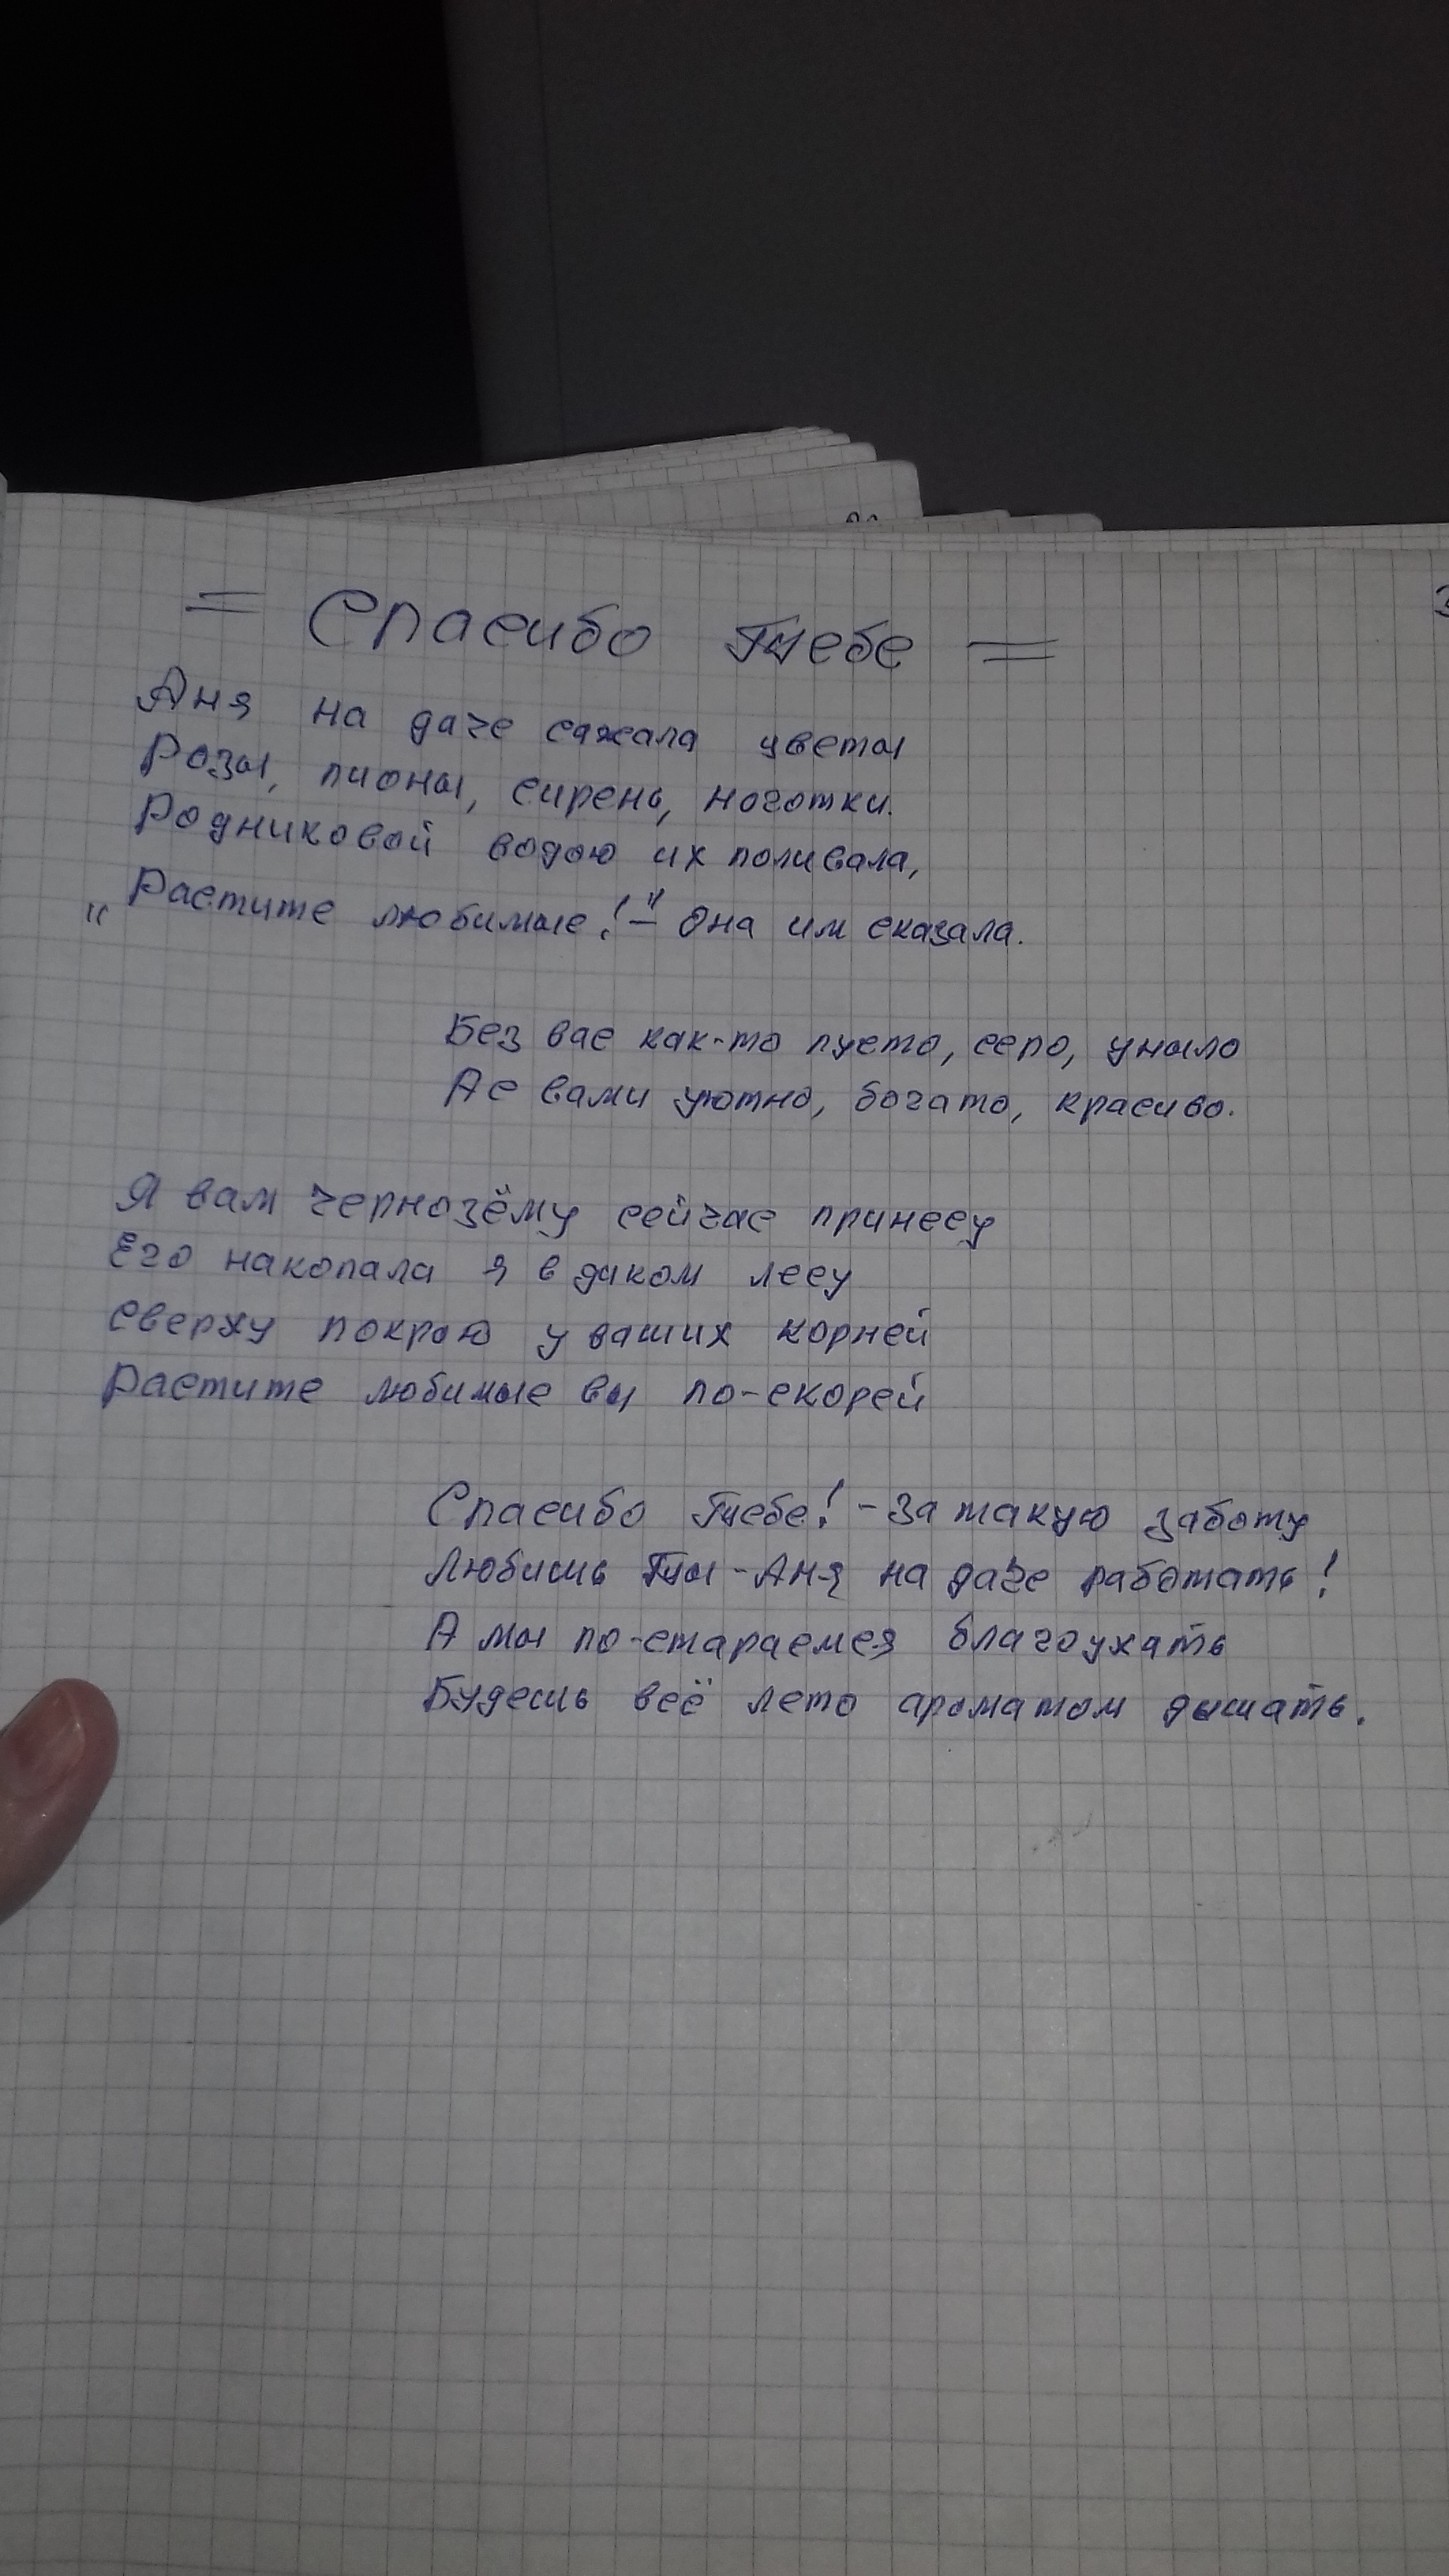 = Спасибо Тебе =
Аня на даче сажала цветы
Розы, пионы, сирень, ноготки.
Родниковой водою их поливала,
"Растите любимые!"- Она им сказала.
Без вас как-то пусто, серо, уныло
А с вами уютно, богато, красиво.
Я вам чернозёму сейчас принесу
Его накопала я в диком лесу
Сверху покрою у ваших корней
Растите любимые вы по-скорей
Спасибо Тебе! - За такую заботу
Любишь Ты - Аня на даче работать!
А мы по-стараемся благоухать
Будешь всё лето ароматом дышать.